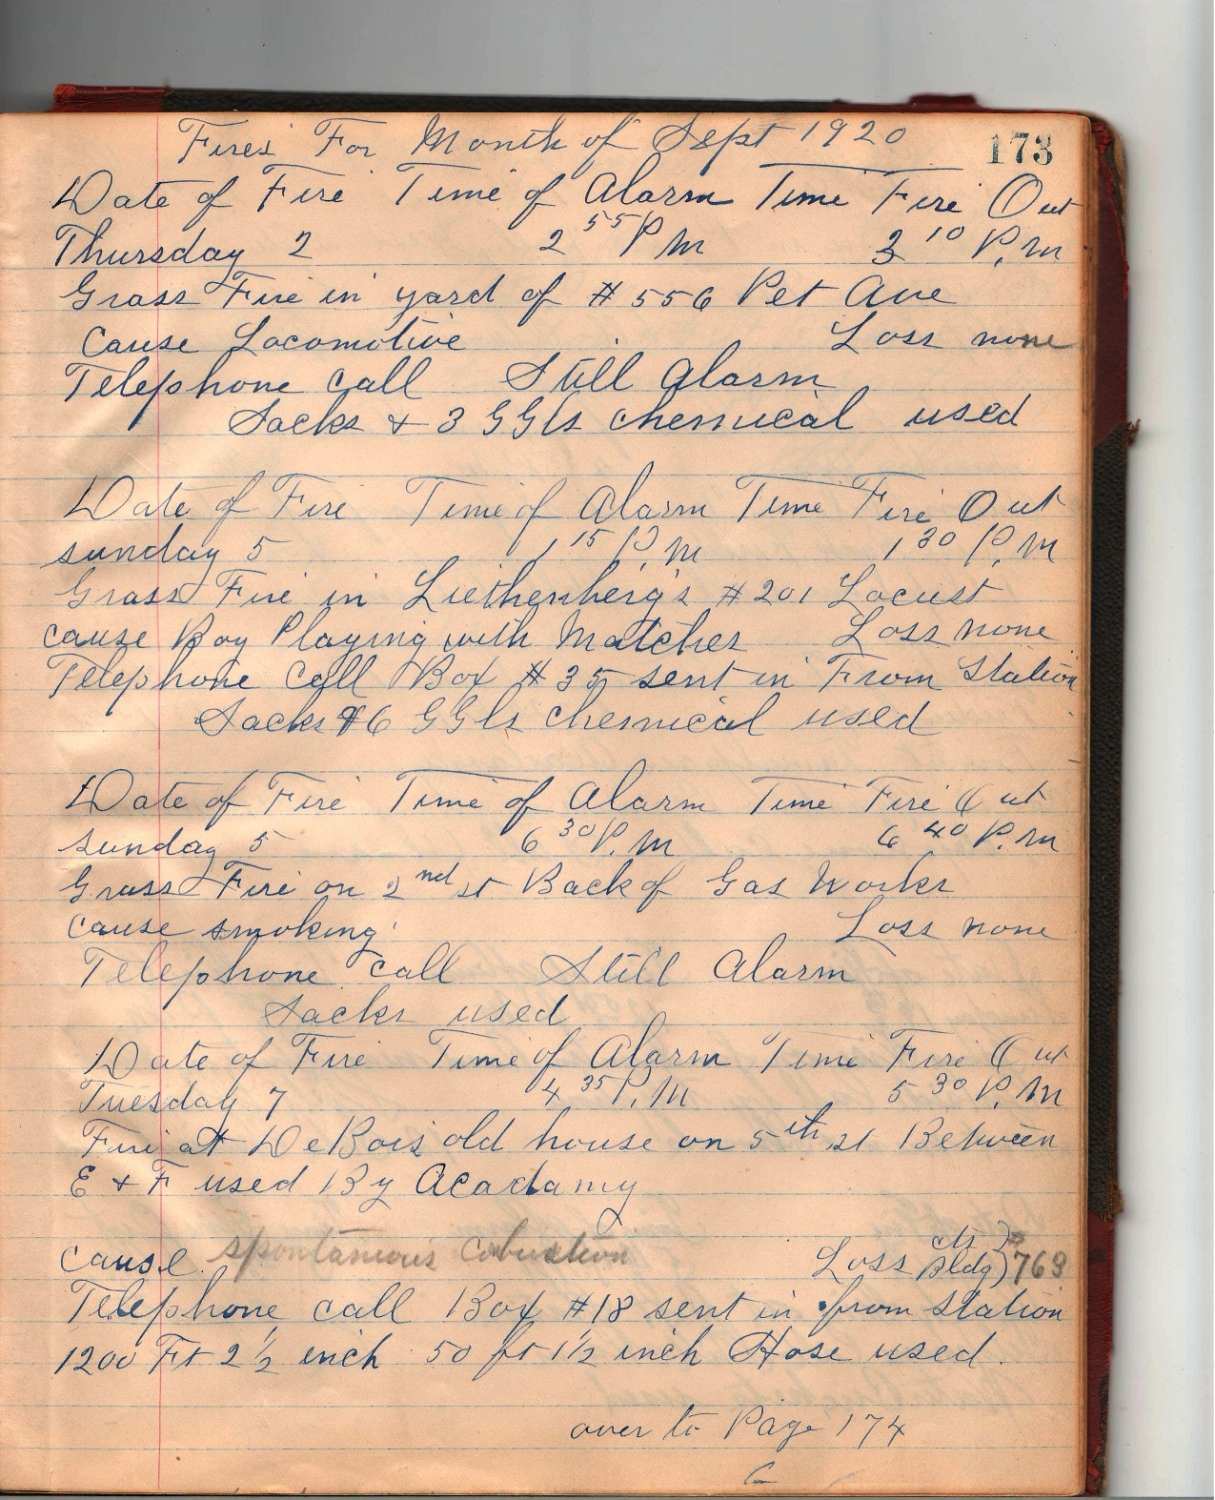 Fires For Month of Sept 1920 173
Date of Fire Time of Alarm Time Fire Out
Thursday 2 2 55 P m 3 10 P.m
Grass Fire in yard of # 556 Pet Ave
Cause Locomotive Loss none
Telephone call Still Alarm
Sacks & 3 GGls chemical used
Date of Fire Time of Alarm Time Fire Out
sunday 5 1 15 P.m 1 30 P.m
Grass Fire in # 201 Locust
cause Boy Playing with Matches Loss none
Telephone Call Box # 35 sent in From Station
Sacks & 6 GGls chemical used
Date of Fire Time of Alarm Time Fire Out
sunday 5 6 30 P.m 6 40 P.m
Grass Fire on 2nd st Back of Gas Works
cause smoking Loss none
Telephone call Still Alarm
Sacks used
Date of Fire Time of Alarm Time Fire Out
Tuesday 7 4 35 P.M 5 30 P.m
Fire at DeBois old house on 5th st Between
E & F used By Acadamy
cause spontanious Loss Bldg) 768
Telephone call Box #18 sent in from station
1200 Ft 2 1/2 inch 50 ft 1 1/2 inch Hose used.
over to Page 174